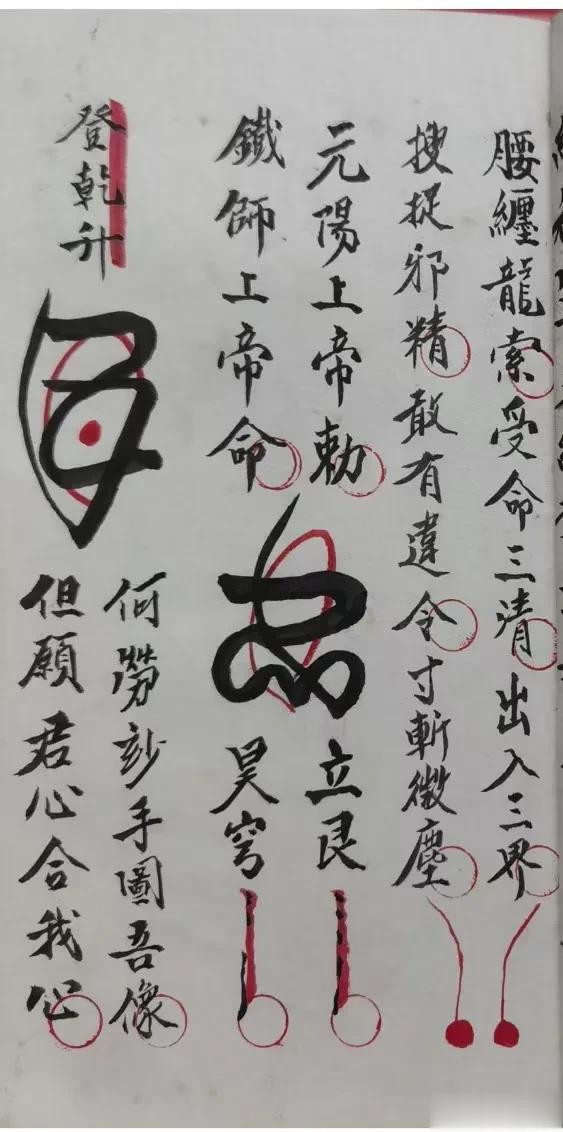 腰纏龍索受命三清出入三界
搜捉邪精敢有違令寸斬微塵
元陽上帝勅
立艮
鐵師上帝命
昊穹
登乾升
何勞妙手圖吾像
但願君心合我心